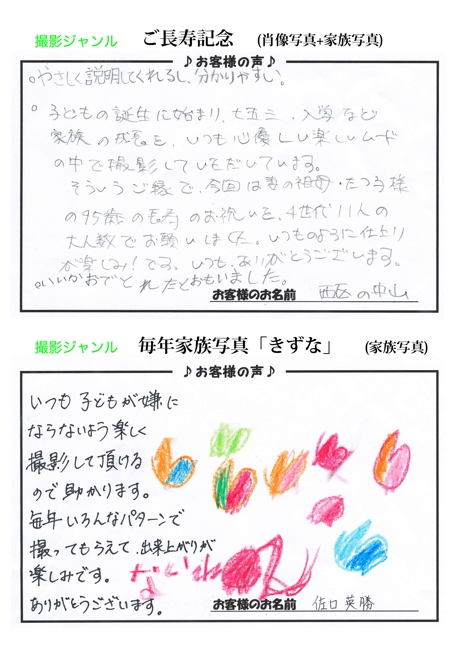 撮影ジャンル ご長寿記念 (肖像写真+家族写真)
♪お客様の声♪
○やさしく説明してくれるし、分かりやすい。
○子どもの誕生に始まり、七五三、入学など
家族の成長を、いつも心優しい楽しいムード
の中で撮影していただいています。
そういうご縁で、今回は妻の祖母・たつ子様
の95歳の長寿のお祝いを、4世代11人の
大人数でお願いしました。いつものように仕上り
が楽しみ!です。いつも、ありがとうございます。
○いいかおでとれたとおもいました。
お客様のお名前 西区の中山
撮影ジャンル 毎年家族写真「きずな」 (家族写真)
♪お客様の声♪
いつも子どもが嫌に
ならないよう楽しく
撮影して頂ける
ので助かります。
毎年いろんなパターンで
撮ってもらえて、出来上がりが
楽しみです。
ありがとうございます。
お客様のお名前 佐口 英勝